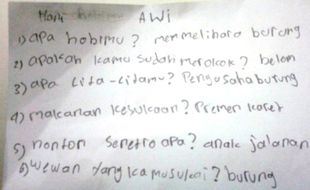 AWi
1) apa hobimu? memelihara burung
2) apakah kamu sudah merokok? belom
3) apa cita-citamu? Pengusaha burung
4) makanan kesukaan? Premen karet
5) nonton senetro apa? anak jalanan
6) wewan yang kamusukai? burung